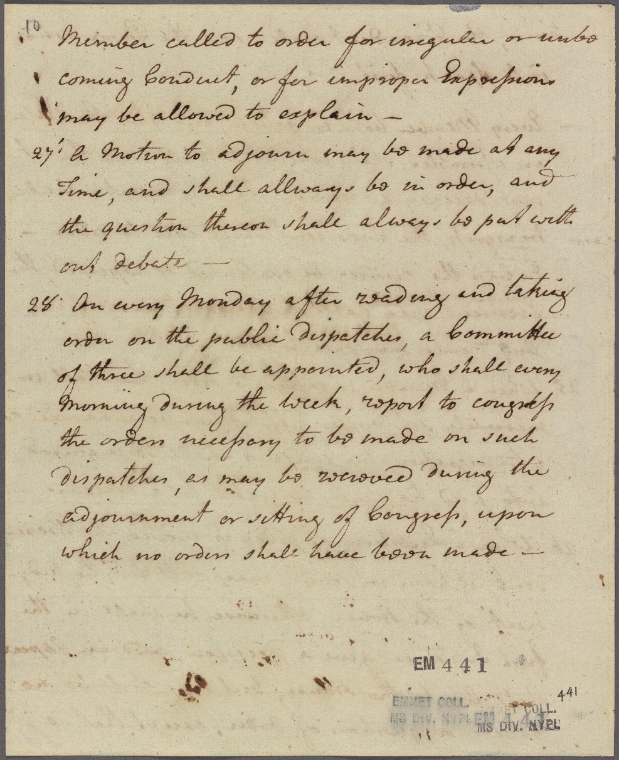 10
Member called to order for irregular or unbe
coming Conduct, or for improper Expressions
may be allowed to explain —
27' A Motion to adjourn may be made at any
Time, and shall allways be in order, and
the question thereon shall always be put with
out debate —
28 On every Monday after reading and taking
order on the public dispatches, a Committee
of three shall be appointed, who shall every
Morning during the week, report to congress
the orders necessary to be made on such
dispatches, as may be recieved during the
adjournment or sitting of Congress, upon
which no orders shall have been made —
EM 441
EMMET COLL.
MS DIV. NYPL
EM 441
EMMET COLL.
MS DIV. NYPL
441